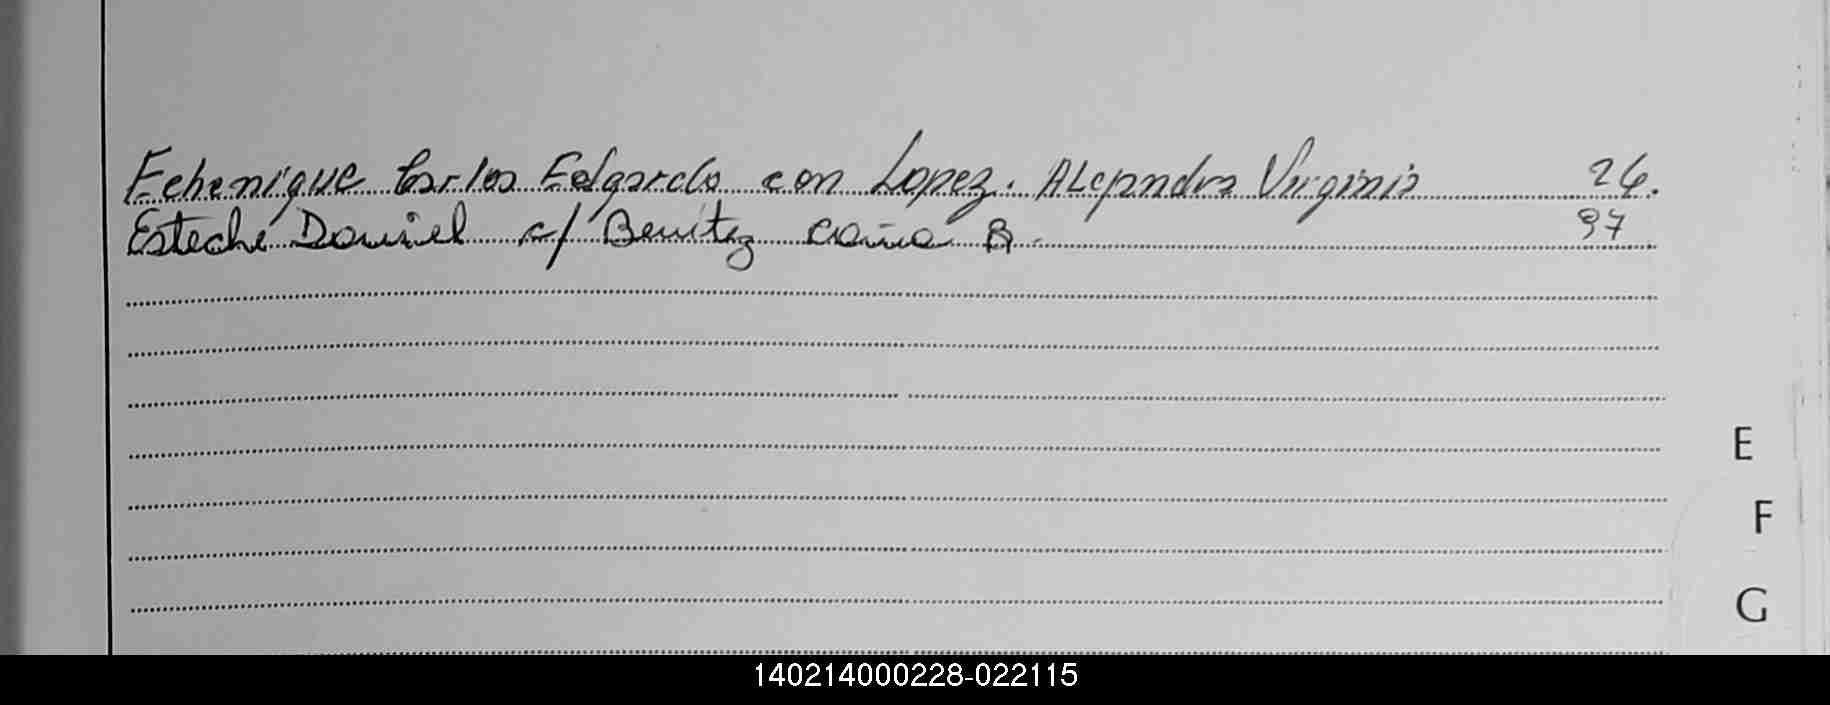 Echenique Carlos Edgardo con Lopez. Alejandra Virginia 26.
Esteche Daniel c/ Benitez R.
97
E
F
G
140214000228-022115